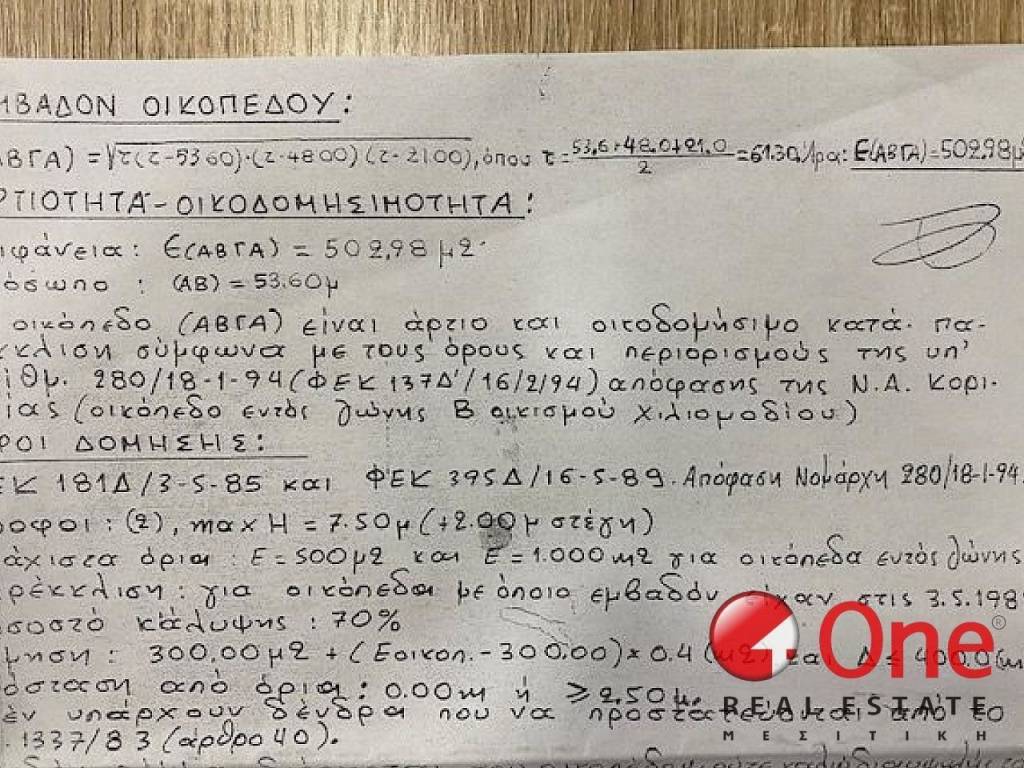 ΜΒΑΔΟΝ ΟΙΚΟΠΕΔΟΥ:
ΑΒΓΑ) = √τ(τ-5360)·(τ-4800)(τ-2100), όπου τ = 53,6+48.0+21.0 / 2 = 61.30. Άρα: Ε(ΑΒΓΑ)=502,98μ
ΡΤΙΟΤΗΤΑ-ΟΙΚΟΔΟΜΗΣΙΜΟΤΗΤΑ:
ιφάνεια: Ε(ΑΒΓΑ) = 502,98 μ2.
όσωπο : (ΑΒ) = 53.60μ
οικόπεδο (ΑΒΓΑ) είναι άρτιο και οικοδομήσιμο κατά πα-
κλιση σύμφωνα με τους όρους και περιορισμούς της υπ'
ιθμ. 280/18-1-94 (ΦΕΚ 137Δ'/16/2/94) απόφασης της Ν.Α. Κοριν-
ίας (οικόπεδο εντός ζώνης Β οικισμού Χιλιομοδίου)
ΡΟΙ ΔΟΜΗΣΗΣ:
ΕΚ 181Δ/3-5-85 και ΦΕΚ 395Δ/16-5-89. Απόφαση Νομάρχη 280/18-1-94.
ροφοι: (2), max H = 7.50μ (+2.00μ στέγη)
άχιστα όρια: Ε=500μ2 και Ε=1.000m2 για οικόπεδα εντός ζώνης
ρέκκλιση: για οικόπεδα με όποιο εμβαδόν είχαν στις 3.5.198
οσοστό κάλυψης: 70%
μηση: 300,00μ2 + (Εοικοπ.-300.00)*0.4 (m2) και Δ≤400.0(m
όσταση από όρια: 0.00m ή ≥2,50μ.
έν υπάρχουν δένδρα που να προστατεύονται από το
. 1337/83 (άρθρο 40).
One®
REAL ESTATE
ΜΕΣΙΤΙΚΗ